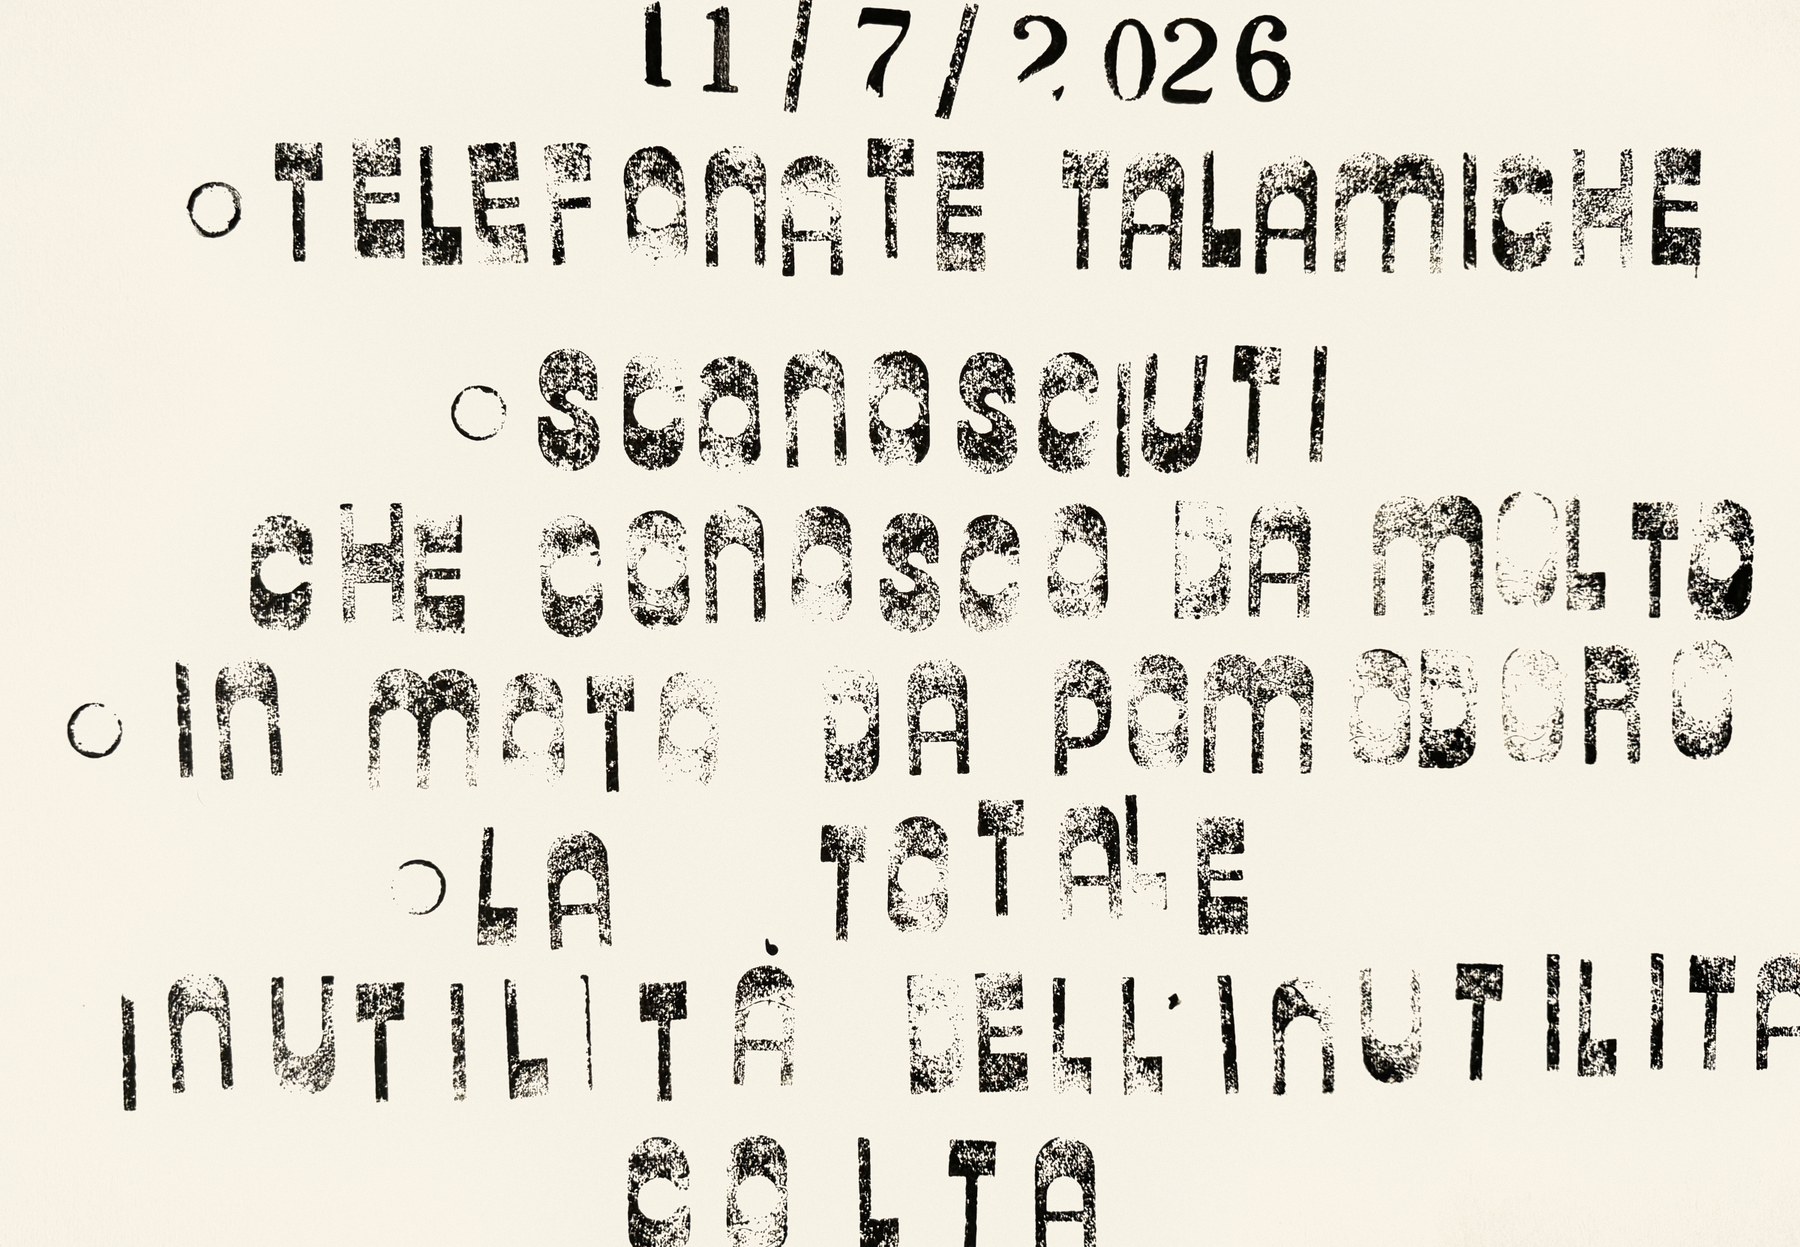 11/7/2026
○ TELEFONATE TALAMICHE
○ SCONOSCIUTI
CHE CONOSCO DA MOLTO
○ IN MOTO DA POMODORO
○ LA TOTALE
INUTILITÀ DELL'INUTILITA
COLTA